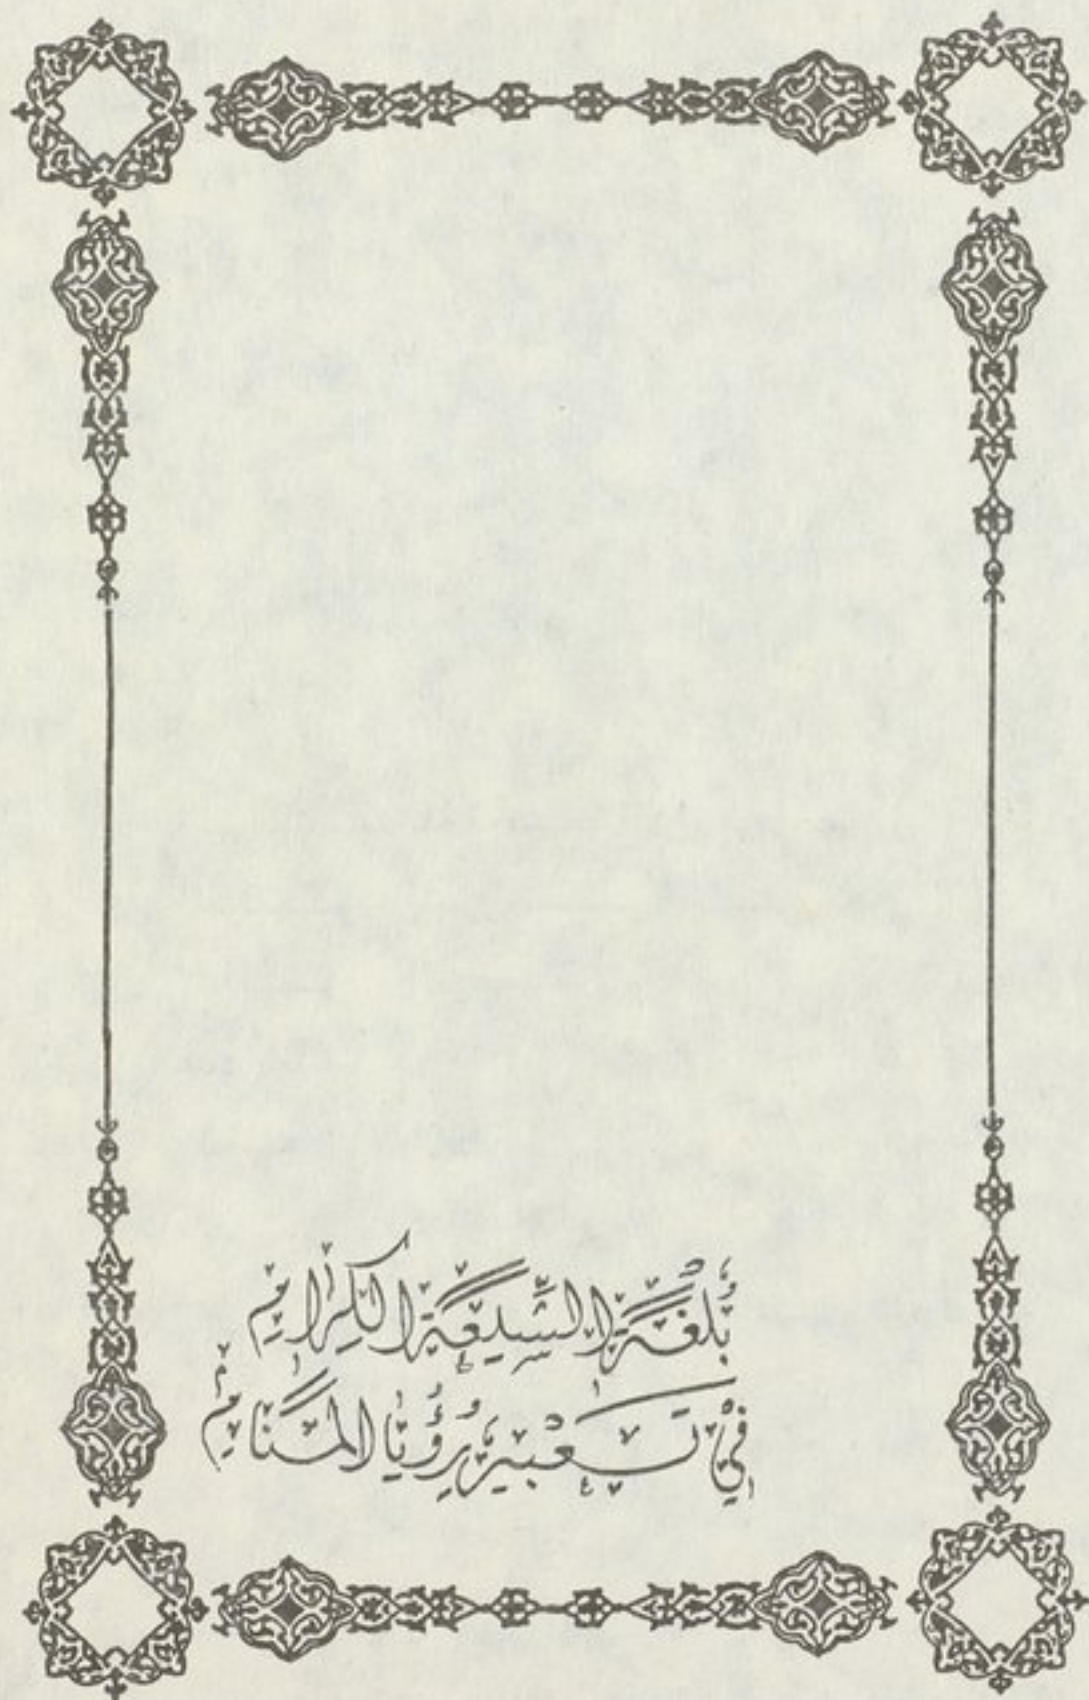 بُلْغَةُ الشِّيعَةِ الْكِرَامِ
فِي تَعْبِيرِ رُؤْيَا الْمَنَامِ